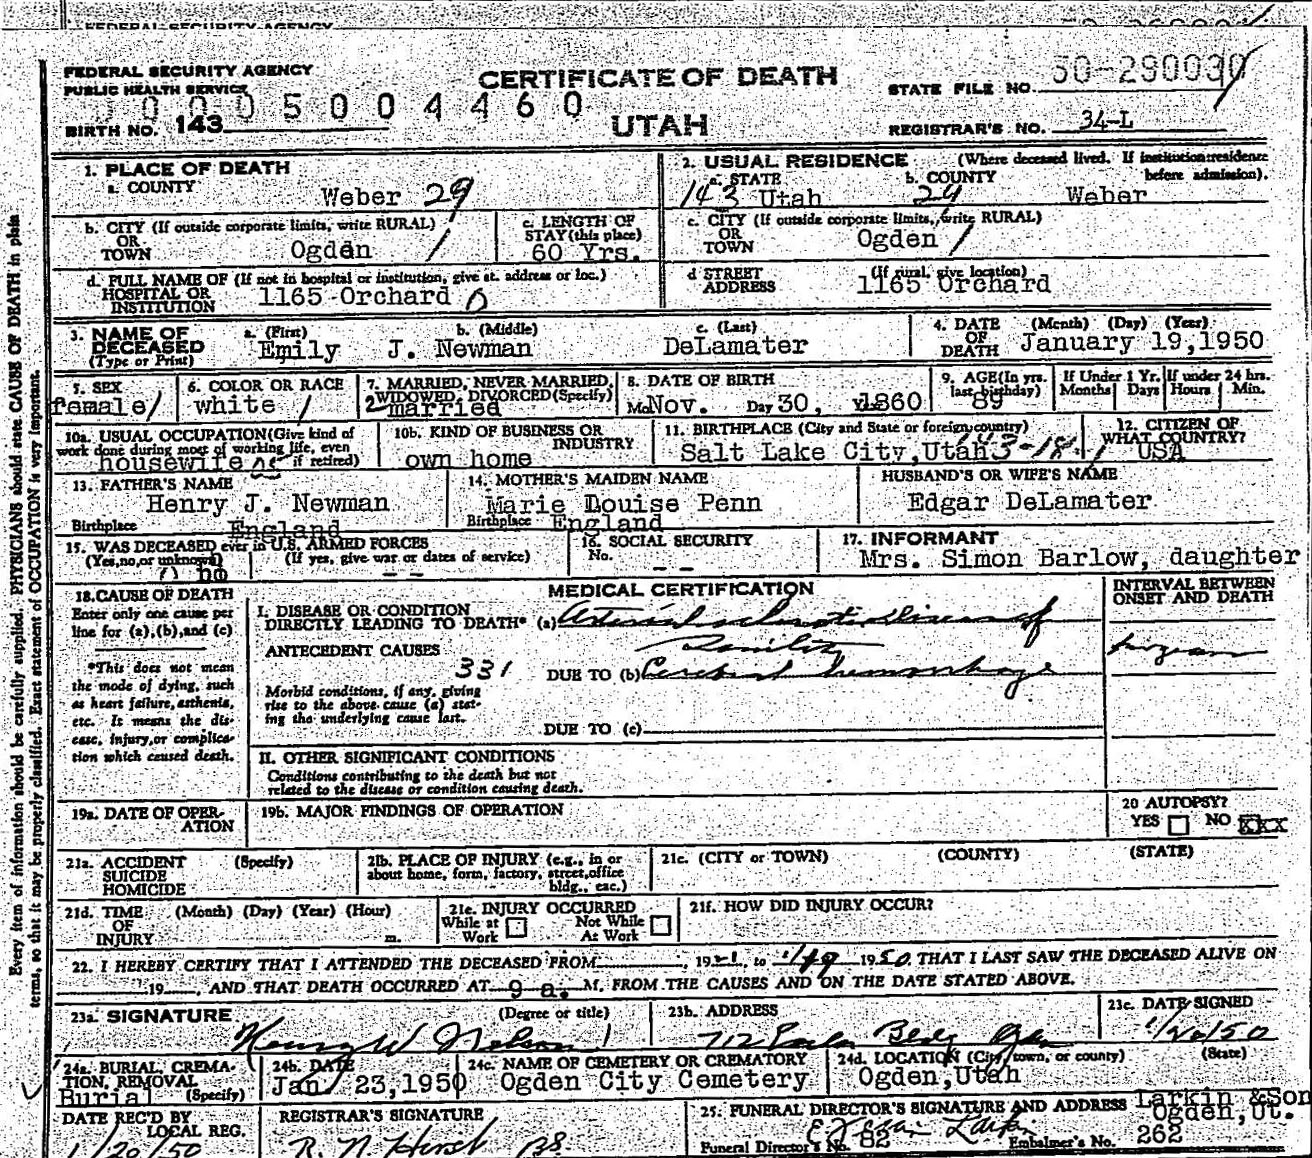 FEDERAL SECURITY AGENCY
FEDERAL SECURITY AGENCY
PUBLIC HEALTH SERVICE
CERTIFICATE OF DEATH
UTAH
STATE FILE NO. 50-290030
0005004460
BIRTH NO. 143
REGISTRAR'S NO. 34-L
Every item of information should be carefully supplied. PHYSICIANS should state CAUSE OF DEATH in plain
terms, so that it may be properly classified. Exact statement of OCCUPATION is very important.
1. PLACE OF DEATH
a. COUNTY
Weber 29
2. USUAL RESIDENCE (Where deceased lived. If institution: residence
before admission).
a. STATE b. COUNTY
143 Utah 29 Weber
b. CITY (If outside corporate limits, write RURAL)
OR
TOWN Ogden /
c. LENGTH OF
STAY (this place)
60 Yrs.
c. CITY (If outside corporate limits, write RURAL)
OR
TOWN Ogden /
d. FULL NAME OF (If not in hospital or institution, give st. address or loc.)
HOSPITAL OR
INSTITUTION 1165 Orchard 0
d STREET (If rural, give location)
ADDRESS 1165 Orchard
3. NAME OF
DECEASED
(Type or Print)
a. (First) b. (Middle) c. (Last)
Emily J. Newman DeLamater
4. DATE (Month) (Day) (Year)
OF
DEATH January 19,1950
5. SEX
female/
6. COLOR OR RACE
white /
7. MARRIED, NEVER MARRIED,
WIDOWED, DIVORCED (Specify)
2 married
8. DATE OF BIRTH
Mo Nov. Day 30, 1860
9. AGE (In yrs.
last birthday)
89
If Under 1 Yr.
Months Days
If under 24 hrs.
Hours Min.
10a. USUAL OCCUPATION (Give kind of
work done during most of working life, even
if retired)
housewife
10b. KIND OF BUSINESS OR
INDUSTRY
own home
11. BIRTHPLACE (City and State or foreign country)
Salt Lake City, Utah
12. CITIZEN OF
WHAT COUNTRY?
USA
13. FATHER'S NAME
Henry J. Newman
Birthplace England
14. MOTHER'S MAIDEN NAME
Marie Louise Penn
Birthplace England
HUSBAND'S OR WIFE'S NAME
Edgar DeLamater
15. WAS DECEASED ever in U.S. ARMED FORCES
(Yes, no, or unknown) (If yes, give war or dates of service)
0 no --
16. SOCIAL SECURITY
No. --
17. INFORMANT
Mrs. Simon Barlow, daughter
18. CAUSE OF DEATH
Enter only one cause per
line for (a), (b), and (c)
*This does not mean
the mode of dying, such
as heart failure, asthenia,
etc. It means the dis-
ease, injury, or complica-
tion which caused death.
MEDICAL CERTIFICATION
INTERVAL BETWEEN
ONSET AND DEATH
I. DISEASE OR CONDITION
DIRECTLY LEADING TO DEATH* (a) Arteriosclerotic disease of
Senility
ANTECEDENT CAUSES
331 DUE TO (b) Cerebral hemorrhage
Morbid conditions, if any, giving
rise to the above cause (a) stat-
ing the underlying cause last.
DUE TO (c)
II. OTHER SIGNIFICANT CONDITIONS
Conditions contributing to the death but not
related to the disease or condition causing death.
19a. DATE OF OPER-
ATION
19b. MAJOR FINDINGS OF OPERATION
20 AUTOPSY?
YES NO XXX
21a. ACCIDENT (Specify)
SUICIDE
HOMICIDE
21b. PLACE OF INJURY (e.g., in or
about home, form, factory, street, office
bldg., etc.)
21c. (CITY or TOWN) (COUNTY) (STATE)
21d. TIME (Month) (Day) (Year) (Hour)
OF
INJURY m.
21e. INJURY OCCURRED
While at Not While
Work At Work
21f. HOW DID INJURY OCCUR?
22. I HEREBY CERTIFY THAT I ATTENDED THE DECEASED FROM , 19 , to 1/19 1950, THAT I LAST SAW THE DECEASED ALIVE ON
19 , AND THAT DEATH OCCURRED AT 9 a. M, FROM THE CAUSES AND ON THE DATE STATED ABOVE.
23a. SIGNATURE (Degree or title)
Henry W Nelson
23b. ADDRESS
712 Bldg Ogden
23c. DATE SIGNED
1/20/50
24a. BURIAL, CREMA-
TION, REMOVAL
(Specify)
Burial
24b. DATE
Jan 23,1950
24c. NAME OF CEMETERY OR CREMATORY
Ogden City Cemetery
24d. LOCATION (City, town, or county) (State)
Ogden, Utah
DATE REC'D BY
LOCAL REG.
1/20/50
REGISTRAR'S SIGNATURE
R. N. Hirst
25. FUNERAL DIRECTOR'S SIGNATURE AND ADDRESS Larkin & Son
Ogden, Ut.
Larkin
Funeral Director's No. 82 Embalmer's No. 262